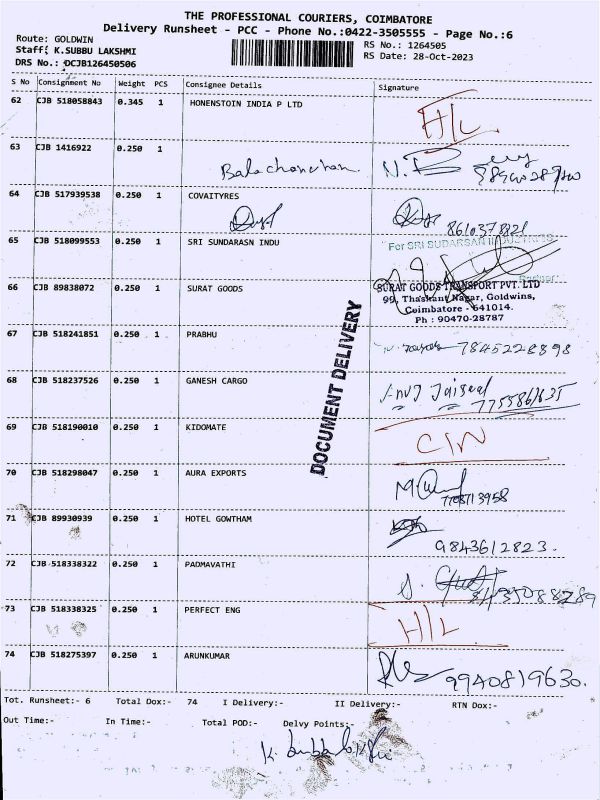 THE PROFESSIONAL COURIERS, COIMBATORE
Delivery Runsheet - PCC - Phone No.:0422-3505555 - Page No.:6
Route: GOLDWIN
Staff: K.SUBBU LAKSHMI
DRS No.: DCJB126450506
RS No.: 1264505
RS Date: 28-Oct-2023
S No Consignment No Weight PCS Consignee Details Signature
62 CJB 518058843 0.345 1 HONENSTOIN INDIA P LTD H/L
63 CJB 1416922 0.250 1 Balachandran
64 CJB 517939538 0.250 1 COVAITYRES 8610378821
65 CJB 518099553 0.250 1 SRI SUNDARASN INDU
For SRI SUDARSAN INDUSTRIES
Partner
66 CJB 89838072 0.250 1 SURAT GOODS
SURAT GOODS TRANSPORT PVT. LTD
99, Thaskant Nagar, Goldwins,
Coimbatore - 641014.
Ph : 90470-28787
67 CJB 518241851 0.250 1 PRABHU 7845228898
68 CJB 518237526 0.250 1 GANESH CARGO Jaiswal
69 CJB 518190010 0.250 1 KIDOMATE C/N
70 CJB 518298047 0.250 1 AURA EXPORTS 7708713958
71 CJB 89930939 0.250 1 HOTEL GOWTHAM 9843612823.
72 CJB 518338322 0.250 1 PADMAVATHI
73 CJB 518338325 0.250 1 PERFECT ENG H/L
74 CJB 518275397 0.250 1 ARUNKUMAR 9940819630.
DOCUMENT DELIVERY
Tot. Runsheet:- 6 Total Dox:- 74 I Delivery:- II Delivery:- RTN Dox:-
Out Time:- In Time:- Total POD:- Delvy Points:-